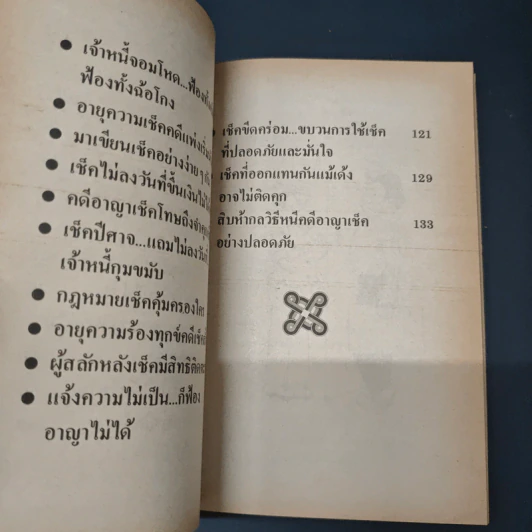 ● เจ้าหนี้จอมโหด...ฟ้อง
ฟ้องทั้งฉ้อโกง
● อายุความเช็คคดีแพ่งเริ่ม
● มาเขียนเช็คอย่างง่ายๆ
● เช็คไม่ลงวันที่ขึ้นเงินไม่
● คดีอาญาเช็คโทษถึงจำคุก
● เช็คปีศาจ...แถมไม่ลงวันที่
เจ้าหนี้กุมขมับ
● กฎหมายเช็คคุ้มครองใคร
● อายุความร้องทุกข์คดีเช็ค
● ผู้สลักหลังเช็คมีสิทธิติด
● แจ้งความไม่เป็น...ก็ฟ้อง
อาญาไม่ได้
เช็คขีดคร่อม...ขบวนการใช้เช็ค 121
ที่ปลอดภัยและมั่นใจ
เช็คที่ออกแทนกันแม้เด้ง 129
อาจไม่ติดคุก
สิบห้ากลวิธีหนีคดีอาญาเช็ค 133
อย่างปลอดภัย